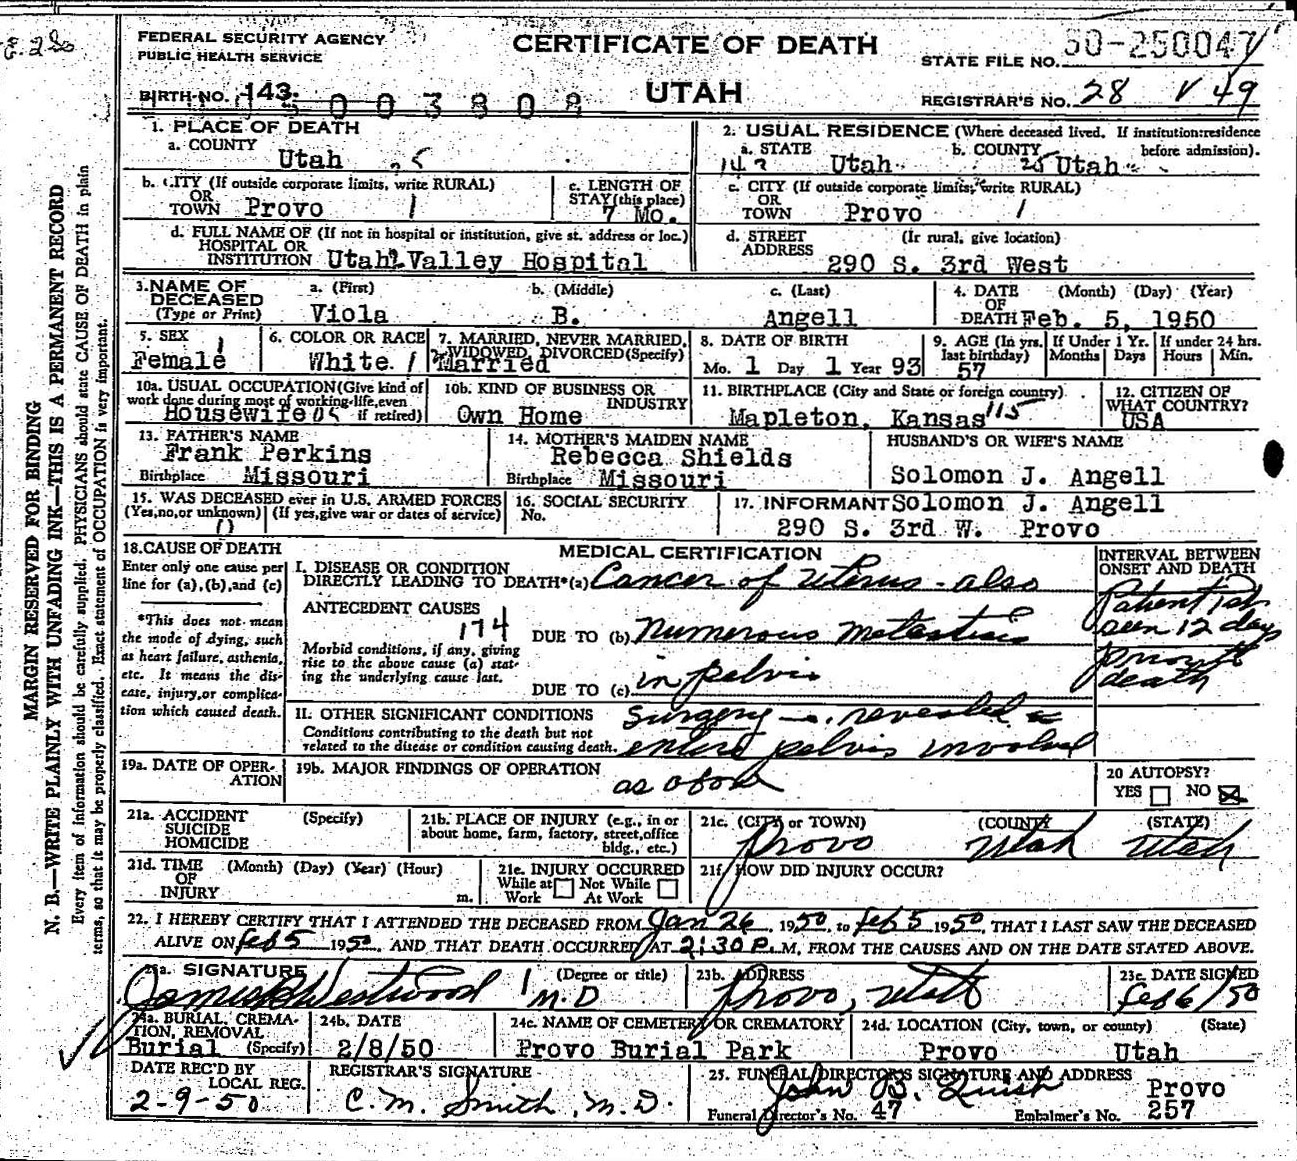 FEDERAL SECURITY AGENCY
PUBLIC HEALTH SERVICE
CERTIFICATE OF DEATH
UTAH
STATE FILE NO. 50-250047
BIRTH NO. 143.
REGISTRAR'S NO. 28 V 49
MARGIN RESERVED FOR BINDING
N. B.—WRITE PLAINLY WITH UNFADING INK—THIS IS A PERMANENT RECORD
Every item of information should be carefully supplied. PHYSICIANS should state CAUSE OF DEATH in plain
terms, so that it may be properly classified. Exact statement of OCCUPATION is very important.
1. PLACE OF DEATH
a. COUNTY
Utah
2. USUAL RESIDENCE (Where deceased lived. If institution:residence
before admission).
a. STATE Utah b. COUNTY 25 Utah
b. CITY (If outside corporate limits, write RURAL)
OR
TOWN Provo 1
c. LENGTH OF
STAY(this place)
7 Mo.
c. CITY (If outside corporate limits, write RURAL)
OR
TOWN Provo 1
d. FULL NAME OF (If not in hospital or institution, give st. address or loc.)
HOSPITAL OR
INSTITUTION Utah Valley Hospital
d. STREET (If rural, give location)
ADDRESS
290 S. 3rd West
3. NAME OF
DECEASED
(Type or Print)
a. (First)
Viola
b. (Middle)
B.
c. (Last)
Angell
4. DATE (Month) (Day) (Year)
OF
DEATH Feb. 5, 1950
5. SEX 1
Female
6. COLOR OR RACE
White 1
7. MARRIED, NEVER MARRIED,
WIDOWED, DIVORCED(Specify)
Married
8. DATE OF BIRTH
Mo. 1 Day 1 Year 93
9. AGE (In yrs.
last birthday)
57
If Under 1 Yr.
Months Days
If under 24 hrs.
Hours Min.
10a. USUAL OCCUPATION(Give kind of
work done during most of working life,even
if retired)
Housewife 05
10b. KIND OF BUSINESS OR
INDUSTRY
Own Home
11. BIRTHPLACE (City and State or foreign country)
Mapleton, Kansas 115
12. CITIZEN OF
WHAT COUNTRY?
USA
13. FATHER'S NAME
Frank Perkins
Birthplace Missouri
14. MOTHER'S MAIDEN NAME
Rebecca Shields
Birthplace Missouri
HUSBAND'S OR WIFE'S NAME
Solomon J. Angell
15. WAS DECEASED ever in U.S. ARMED FORCES
(Yes,no,or unknown) (If yes,give war or dates of service)
16. SOCIAL SECURITY
No.
17. INFORMANT Solomon J. Angell
290 S. 3rd W. Provo
18. CAUSE OF DEATH
Enter only one cause per
line for (a),(b),and (c)
*This does not mean
the mode of dying, such
as heart failure, asthenia,
etc. It means the dis-
ease, injury,or complica-
tion which caused death.
MEDICAL CERTIFICATION
I. DISEASE OR CONDITION
DIRECTLY LEADING TO DEATH*(a) Cancer of uterus - also
ANTECEDENT CAUSES
174
DUE TO (b) numerous metastisis
Morbid conditions, if any, giving
rise to the above cause (a) stat-
ing the underlying cause last.
DUE TO (c) in pelvis
INTERVAL BETWEEN
ONSET AND DEATH
Patient 1st
seen 12 days
prior to
death
II. OTHER SIGNIFICANT CONDITIONS
Conditions contributing to the death but not
related to the disease or condition causing death.
Surgery revealed
entire pelvis involved
19a. DATE OF OPER-
ATION
19b. MAJOR FINDINGS OF OPERATION
as above
20 AUTOPSY?
YES NO
21a. ACCIDENT
SUICIDE
HOMICIDE
(Specify)
21b. PLACE OF INJURY (e.g., in or
about home, farm, factory, street,office
bldg., etc.)
21c. (CITY or TOWN) (COUNTY) (STATE)
Provo Utah Utah
21d. TIME (Month) (Day) (Year) (Hour)
OF
INJURY m.
21e. INJURY OCCURRED
While at Work Not While At Work
21f. HOW DID INJURY OCCUR?
22. I HEREBY CERTIFY THAT I ATTENDED THE DECEASED FROM Jan 26, 1950, to Feb 5 1950, THAT I LAST SAW THE DECEASED
ALIVE ON Feb 5 1950 AND THAT DEATH OCCURRED AT 2:30 P. M. FROM THE CAUSES AND ON THE DATE STATED ABOVE.
23a. SIGNATURE (Degree or title)
Westwood M.D
23b. ADDRESS
Provo, Utah
23c. DATE SIGNED
Feb 6/50
24a. BURIAL, CREMA-
TION, REMOVAL
Burial (Specify)
24b. DATE
2/8/50
24c. NAME OF CEMETERY OR CREMATORY
Provo Burial Park
24d. LOCATION (City, town, or county) (State)
Provo Utah
DATE REC'D BY
LOCAL REG.
2-9-50
REGISTRAR'S SIGNATURE
C. M. Smith, M.D.
25. FUNERAL DIRECTOR'S SIGNATURE AND ADDRESS
John B. Provo
Funeral Director's No. 47 Embalmer's No. 257